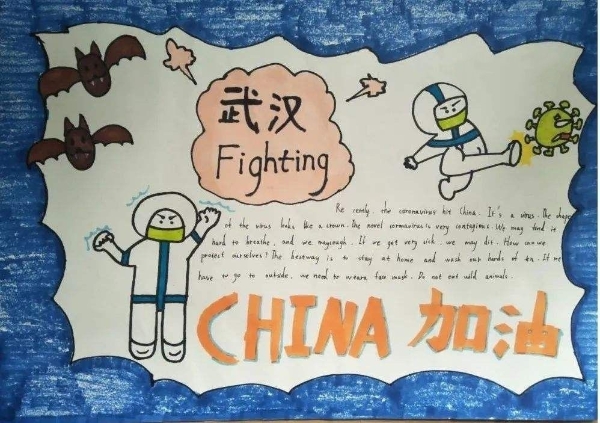 武汉
Fighting
Recently, the coronavirus hit China. It's a virus. The shape
of the virus looks like a crown. The novel coronavirus is very contagious. We may find it
hard to breathe, and we may cough. If we get very sick, we may die. How can we
protect ourselves? The best way is to stay at home and wash our hands often. If we
have to go to outside, we need to wear a face mask. Do not eat wild animals.
CHINA 加油